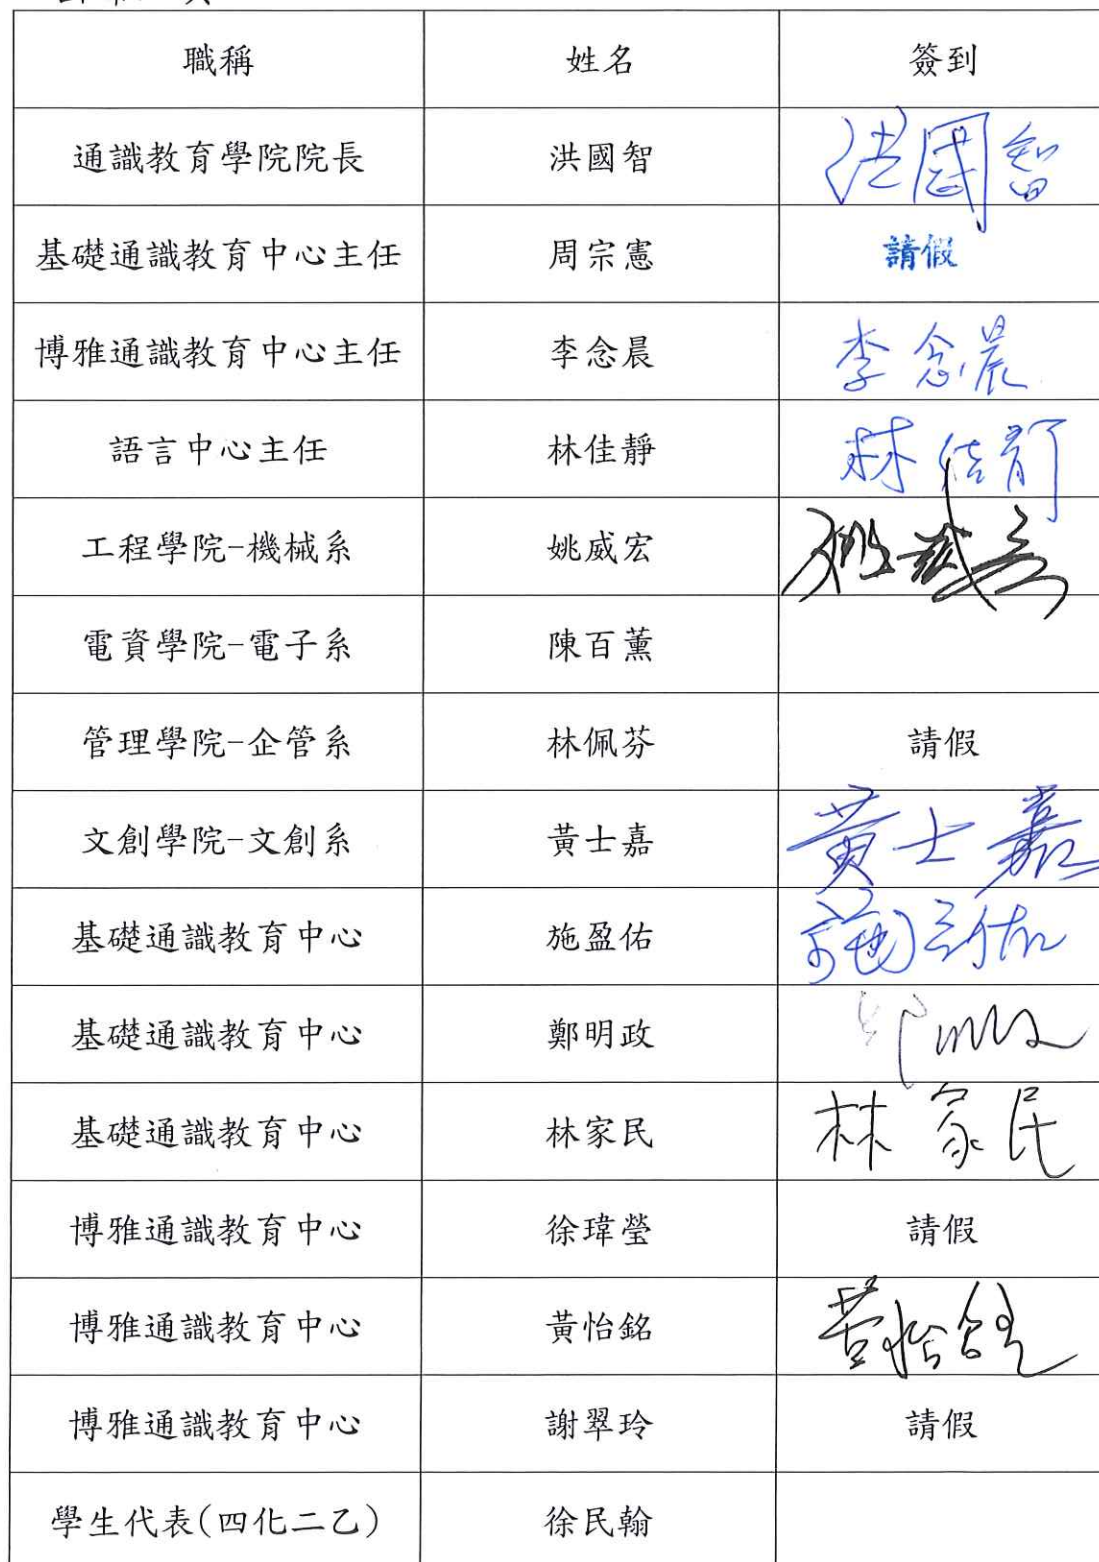 職稱 姓名 簽到
通識教育學院院長 洪國智 洪國智
基礎通識教育中心主任 周宗憲 請假
博雅通識教育中心主任 李念晨 李念晨
語言中心主任 林佳靜 林佳靜
工程學院-機械系 姚威宏 姚威宏
電資學院-電子系 陳百薰
管理學院-企管系 林佩芬 請假
文創學院-文創系 黃士嘉 黃士嘉
基礎通識教育中心 施盈佑
基礎通識教育中心 鄭明政
基礎通識教育中心 林家民 林家民
博雅通識教育中心 徐瑋瑩 請假
博雅通識教育中心 黃怡銘 黃怡銘
博雅通識教育中心 謝翠玲 請假
學生代表(四化二乙) 徐民翰